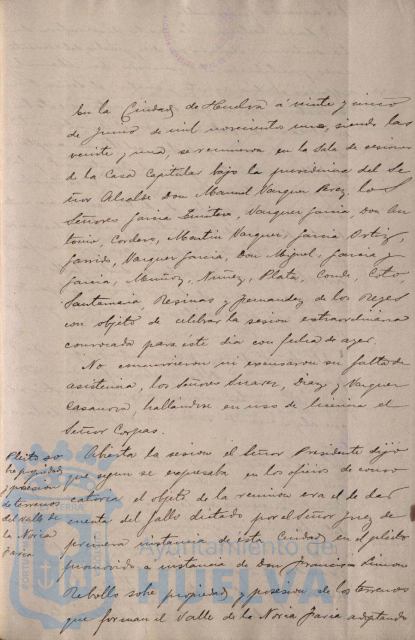 En la Ciudad de Huelva á veinte y cinco
de Junio de mil novecientos uno, siendo las
veinte y una, se reunieron en la Sala de sesiones
de la Casa Capitular bajo la presidencia del Se-
ñor Alcalde Don Manuel Vazquez Perez, los
Señores Garcia Vazquez Garcia Don An-
tonio, Cordero, Martin Vazquez, Garcia Ortiz,
Garrido, Vazquez Garcia, Don Miguel, Garcia y
Garcia, Muñoz, Nuñez, Plata, Conde, Coto,
Santamaria, Resinas y Fernandez de los Reyes
con objeto de celebrar la sesion extraordinaria
convocada para este dia con fecha de ayer.
No concurrieron ni excusaron su falta de
asistencia, los Señores Suarez, Diaz y Vazquez
Casanova, hallandose en uso de licencia el
Señor Corpas.
Pleito so-
bre propiedad
y posesion
de terrenos
del Valle de
la Noria
Faria
Abierta la sesion el Señor Presidente dijo
que segun se expresaba en los oficios de convo-
catoria el objeto de la reunion era el de dar
cuenta del fallo dictado por el Señor Juez de
primera instancia de esta Ciudad en el pleito
promovido a instancia de Don Francisco
Rebollo sobre propiedad y posesion de los terrenos
que forman el Valle de la Noria Faria adoptando
Ayuntamiento de
HUELVA